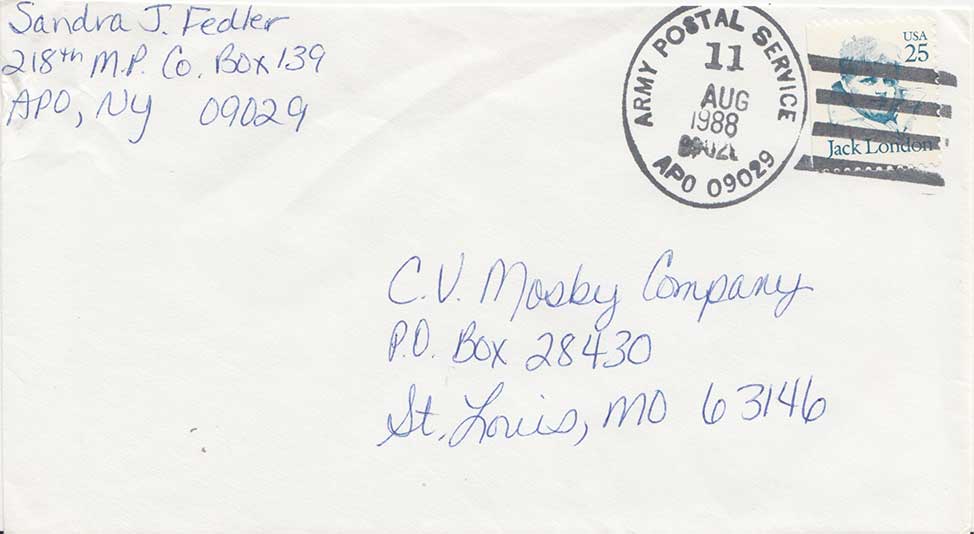 Sandra J. Fedler
218th M.P. Co. Box 139
APO, NY 09029
ARMY POSTAL SERVICE
11
AUG
1988
APO 09029
USA
25
Jack London
C.V. Mosby Company
P.O. Box 28430
St. Louis, MO 63146